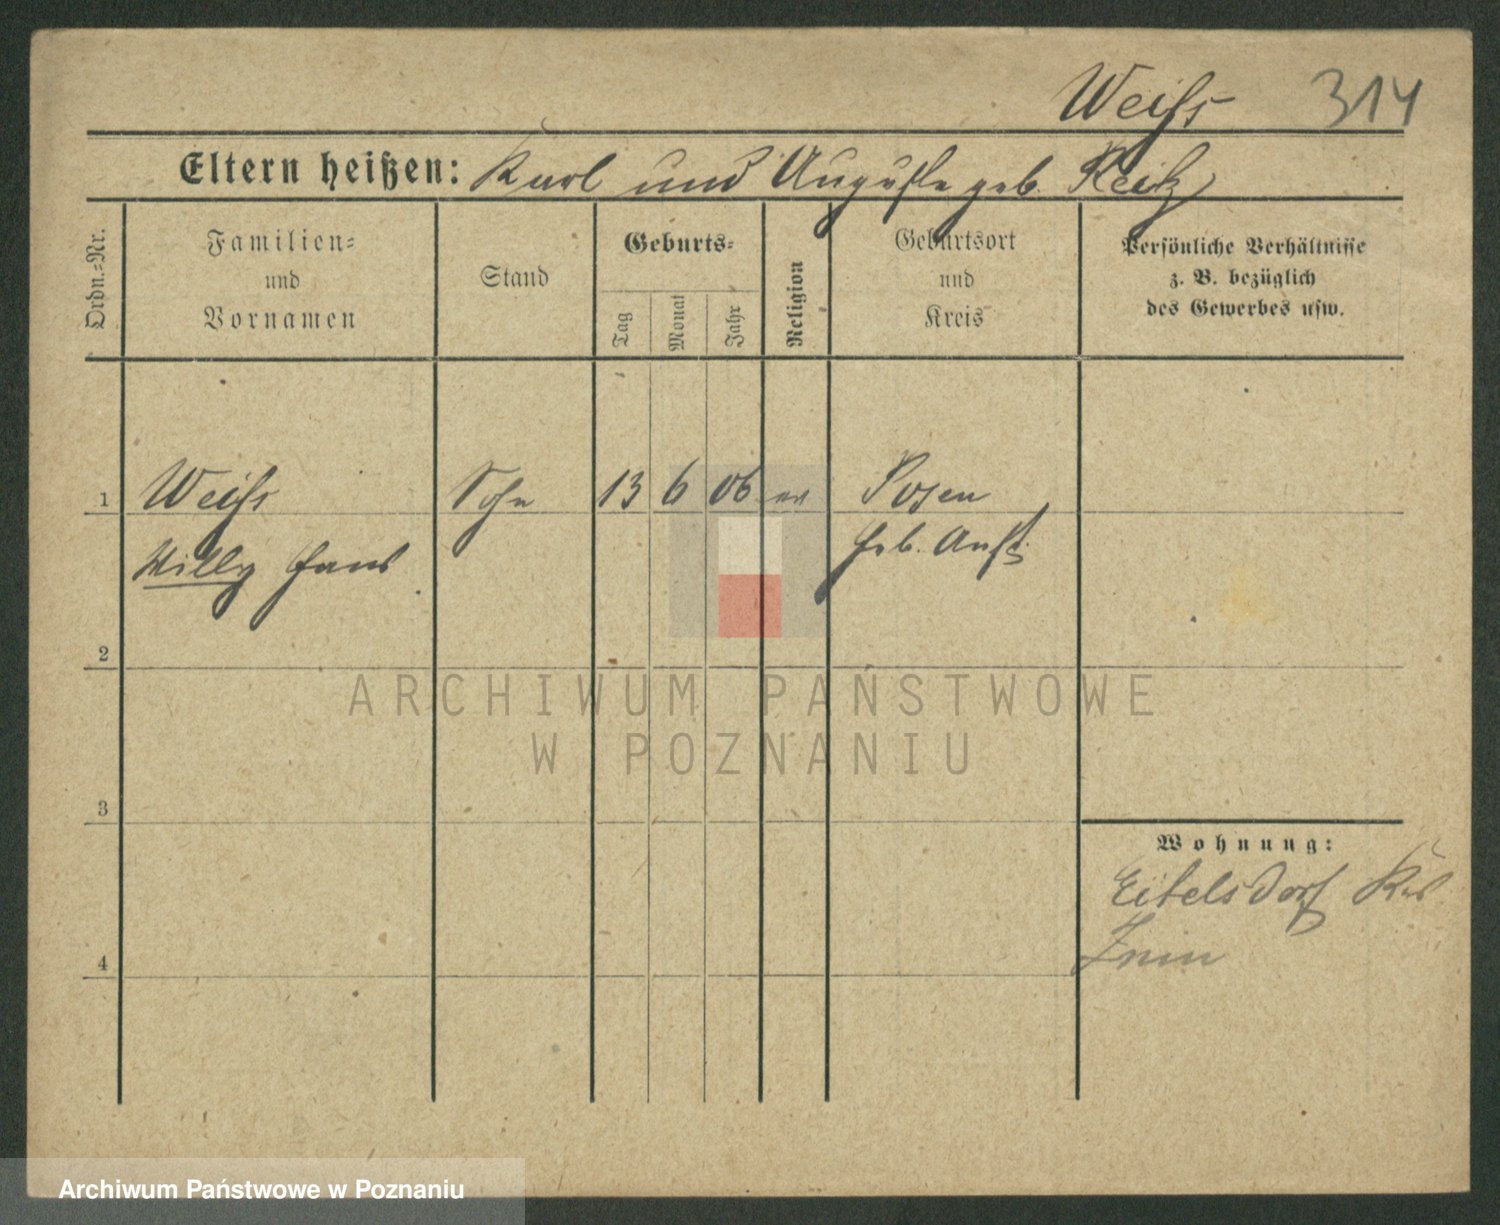 Weiss 314
Eltern heißen: Karl und Auguste geb. Reitz
Ordn.=Nr.
Familien=
und
Vornamen
Stand
Geburts=
Tag
Monat
Jahr
Religion
Geburtsort
und
Kreis
Persönliche Verhältnisse
z. B. bezüglich
des Gewerbes usw.
1 Weiss Sohn 13 6 06 ev Posen
Willy Hans Geb. Anst.
2
ARCHIWUM PAŃSTWOWE
W POZNANIU
3
Wohnung:
Eitelsdorf Krs
Znin
4
Archiwum Państwowe w Poznaniu